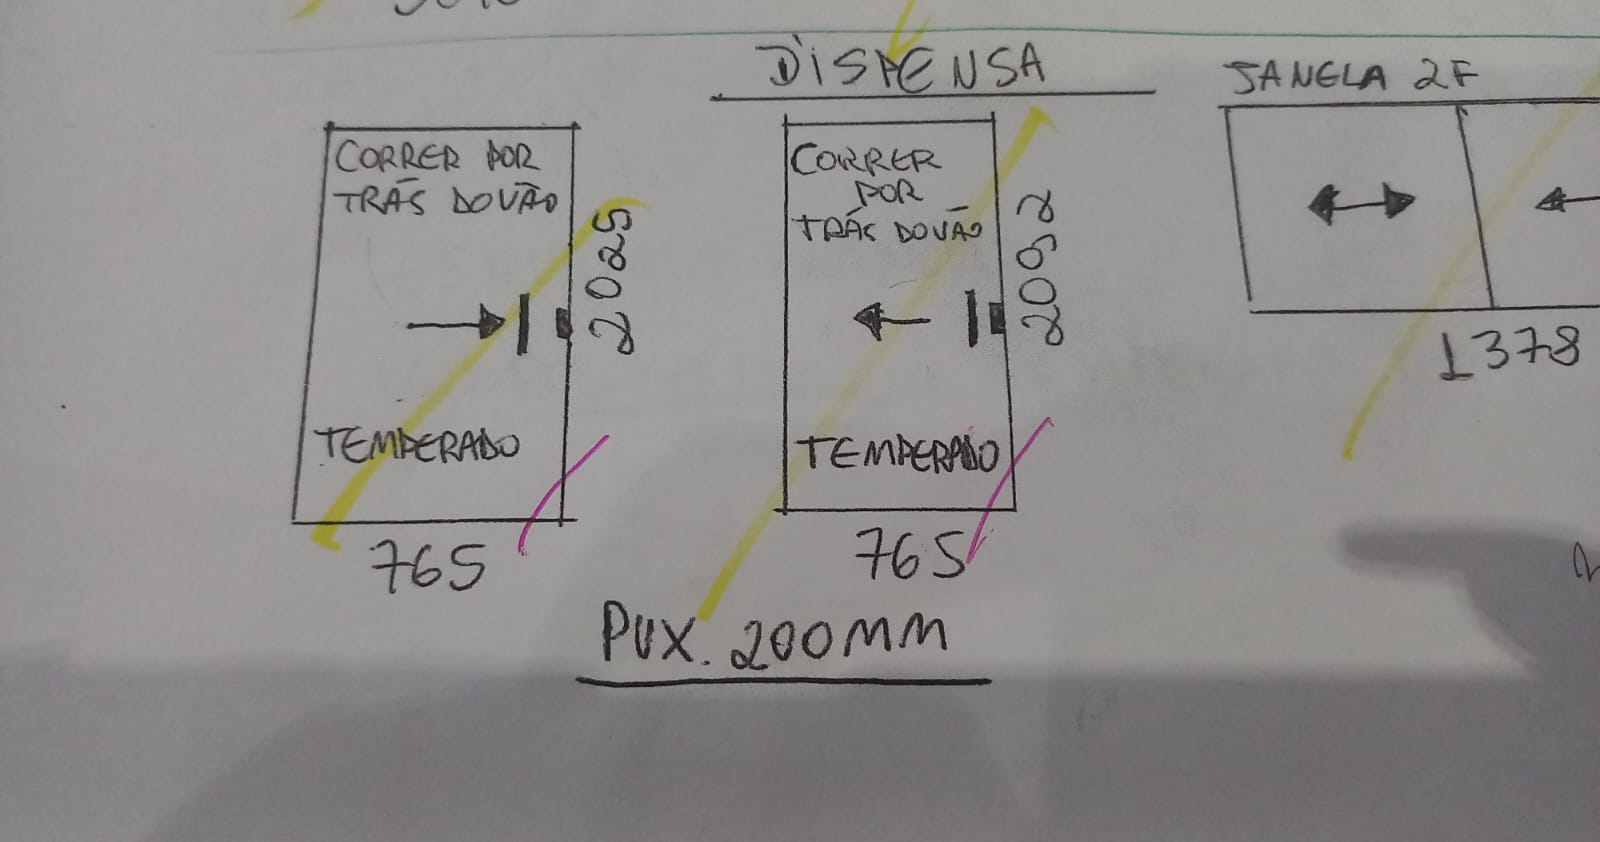 DISPENSA
JANELA 2F
CORRER POR
TRÁS DO VÃO
2025
TEMPERADO
765
CORRER
POR
TRÁS DO VÃO
2092
TEMPERADO
765
1378
PUX. 200MM